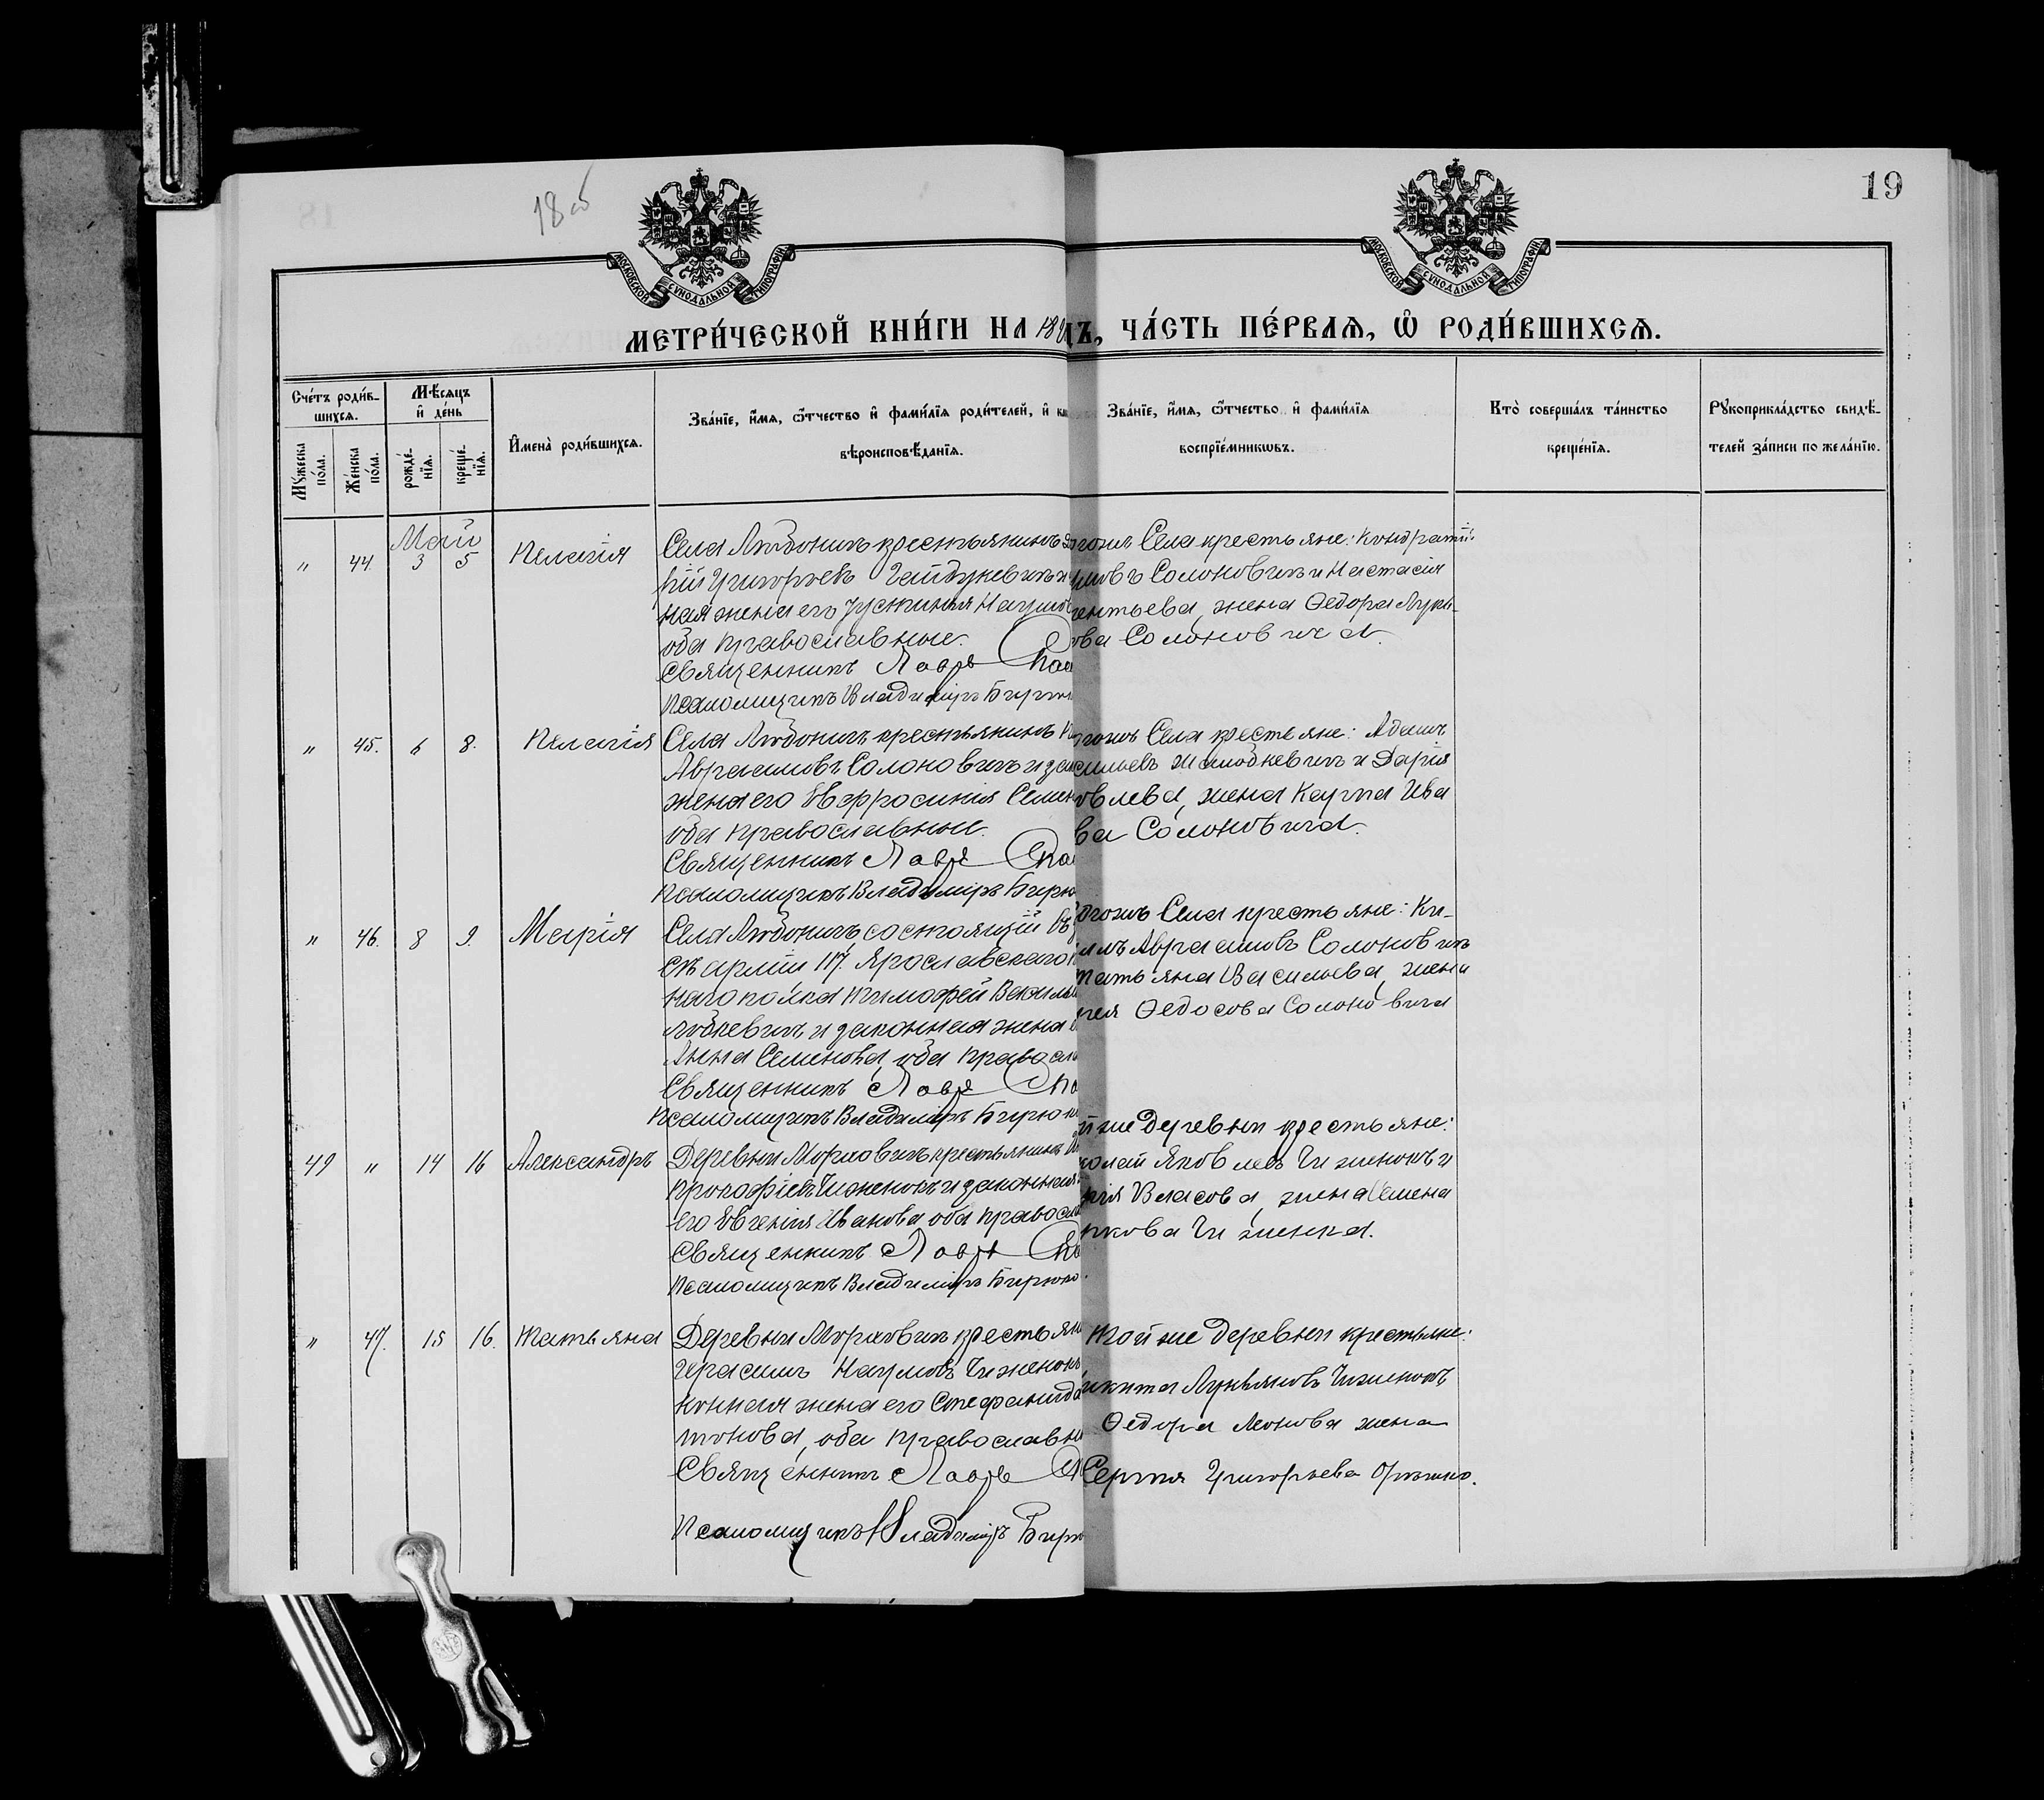 18 об
19
МОСКОВСКОЙ СѴНОДАЛЬНОЙ ТИПОГРАФІИ
МОСКОВСКОЙ СѴНОДАЛЬНОЙ ТИПОГРАФІИ
МЕТРИ́ЧЕСКОЙ КНИ́ГИ НА 18 ДЪ, ЧА́СТЬ ПЕ́РВАѦ, Ѽ РОДИ́ВШИХСѦ.
Сче́тъ роди́в-
шихсѧ.
Мꙋ́жеска по́ла.
Же́нска по́ла.
Мѣ́сѧцъ
и҆ де́нь
рожде́-нїѧ.
креще́-нїѧ.
И҆мена̀ роди́вшихсѧ.
Зва́нїе, и҆́мѧ, ѻ҆́тчество и҆ фами́лїѧ роди́телей, и҆ ка
вѣроисповѣ́данїѧ.
Зва́нїе, и҆́мѧ, ѻ҆́тчество и҆ фами́лїѧ
воспрїе́мникѡвъ.
Кто̀ соверша́лъ та́инство
креще́нїѧ.
Рꙋкоприкла́дство свидѣ́-
телей за́писи по жела́нїю.
Май
" 44 3 5 Пелагія
Села Любонич крестьянинъ
кій Григорьевъ Гайдукевичъ и
ная жена его Іустинія Наумов
оба православные.
Священникъ Лавръ
Псаломщикъ Владиміръ Бирюк
тогожъ Села крестьяне: Кондратій
мовъ Солоновичъ и Настасія
ентьева, жена Ѳедора Лукь-
ова Солоновича.
" 45. 6 8. Пелагія
Села Любоничъ крестьянинъ
Авраамовъ Солоновичъ и зак
жена его Евфросинія Семен
оба православные.
Священникъ Лавръ
Псаломщикъ Владиміръ Бирю
тогожъ Села крестьяне: Адамъ
сильевъ Жалобкевичъ и Дарія
овлева, жена Карпа Ива
ва Солоновича.
" 46. 8 9. Марія
Села Любоничъ состоящій въ
скѣ арміи 117. Ярославскаго
наго полка Тимофей Василь
любкевичъ и законная жена е
Анна Семенова, оба правосла
Священникъ Лавръ
Псаломщикъ Владиміръ Бирюк
тогожъ Села крестьяне: Ки-
иллъ Авраамовъ Солоновичъ
Татьяна Васильева, жена
гея Ѳедосова Солоновича
49 " 14 16 Александръ
ДеревниМорховичъ крестьянинъ
Прокофіевъ Чиженокъ и законная
его Евгенія Иванова оба правосла
Священникъ Лавръ
Псаломщикъ Владиміръ Бирюко
й же деревни крестьяне:
колай Яковлевъ Чиженокъ и
нія Власова, жена Семена
кова Чиженка.
" 47. 15 16. Татьяна
Деревни Морховичъ крестьян
Герасимъ Наумовъ Чиженокъ
конная жена его Стефанида
тонова, оба православн
Священникъ Лавръ
Псаломщикъ Владиміръ Бирю
Той же деревни крестьяне:
икита Лукьяновъ Чиженокъ
Ѳедора Леонова жена
Сергѣя Григорьева